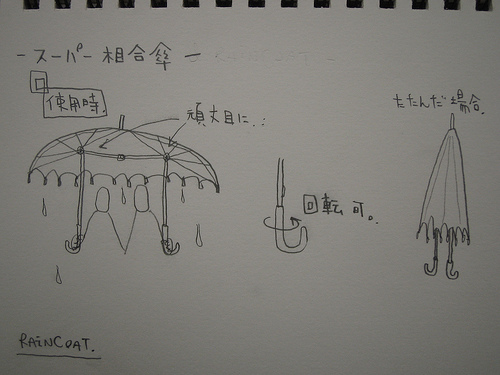 －スーパー相合傘－
使用時
頑丈目に..:
回転可。
たたんだ場合.
RAiNCOAT.